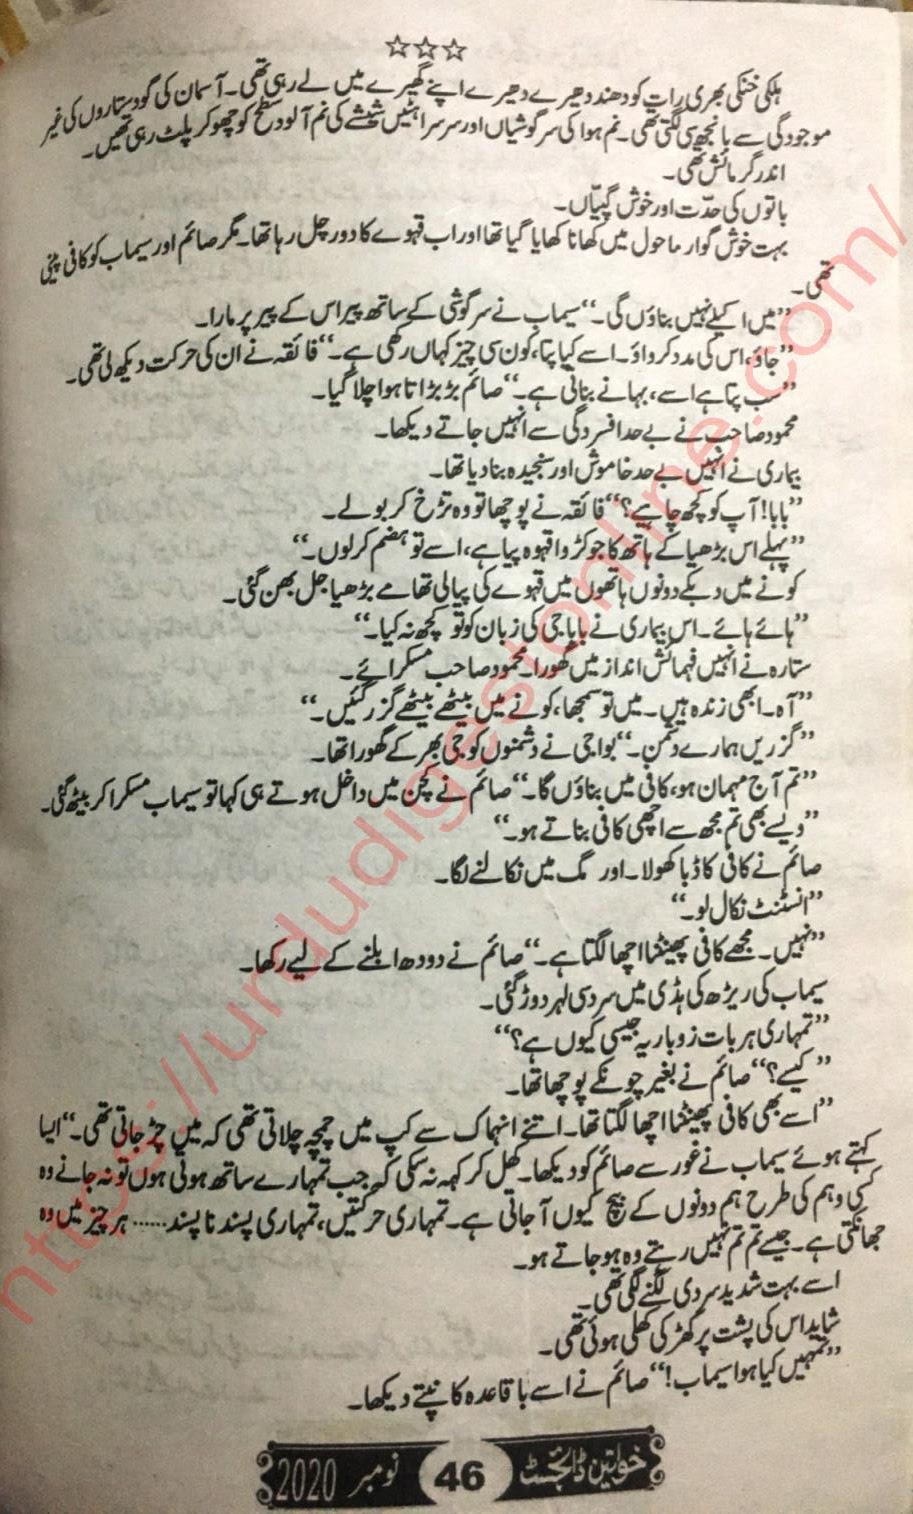 ☆☆☆
ہلکی خنکی بھری رات کو دھند دھیرے دھیرے اپنے گھیرے میں لے رہی تھی۔ آسمان کی گود ستاروں کی غیر
موجودگی سے بانجھ سی لگتی تھی۔ نم ہوا کی سرگوشیاں اور سرسراہٹیں شیشے کی نم آلود سطح کو چھو کر پلٹ رہی تھیں۔
اندر گرمائش تھی۔
باتوں کی حدّت اور خوش گپیّاں۔
بہت خوش گوار ماحول میں کھانا کھایا گیا تھا اور اب قہوے کا دور چل رہا تھا۔ مگر صائم اور سیماب کو کافی پینی
تھی۔
”میں اکیلے نہیں بناؤں گی۔“ سیماب نے سرگوشی کے ساتھ پیر اس کے پیر پر مارا۔
”جاؤ، اس کی مدد کرواؤ۔ اسے کیا پتا، کون سی چیز کہاں رکھی ہے۔“ فائقہ نے ان کی حرکت دیکھ لی تھی۔
”سب پتا ہے اسے، بہانے بناتی ہے۔“ صائم بڑبڑاتا ہوا چلا گیا۔
محمود صاحب نے بے حد افسردگی سے انہیں جاتے دیکھا۔
بیماری نے انہیں بے حد خاموش اور سنجیدہ بنا دیا تھا۔
”بابا! آپ کو کچھ چاہیے؟“ فائقہ نے پوچھا تو وہ تڑخ کر بولے۔
”پہلے اس بڑھیا کے ہاتھ کا جو کڑوا قہوہ پیا ہے، اسے تو ہضم کر لوں۔“
کونے میں دبکے دونوں ہاتھوں میں قہوے کی پیالی تھامے بڑھیا جل بھن گئی۔
”ہائے ہائے۔ اس بیماری نے بابا جی کی زبان کو تو کچھ نہ کیا۔“
ستارہ نے انہیں فہمائش انداز میں گھورا۔ محمود صاحب مسکرائے۔
”آہ۔ ابھی زندہ ہیں۔ میں تو سمجھا، کونے میں بیٹھے بیٹھے گزر گئیں۔“
”گزریں ہمارے دشمن۔“ بوا جی نے دشمنوں کو جی بھر کے گھورا تھا۔
”تم آج مہمان ہو، کافی میں بناؤں گا۔“ صائم نے کچن میں داخل ہوتے ہی کہا تو سیماب مسکرا کر بیٹھ گئی۔
”ویسے بھی تم مجھ سے اچھی کافی بناتے ہو۔“
صائم نے کافی کا ڈبا کھولا۔ اور مگ میں نکالنے لگا۔
”انسٹنٹ نکال لو۔“
”نہیں۔ مجھے کافی پھینٹنا اچھا لگتا ہے۔“ صائم نے دودھ ابلنے کے لیے رکھا۔
سیماب کی ریڑھ کی ہڈی میں سرد سی لہر دوڑ گئی۔
”تمہاری ہر بات زوباریہ جیسی کیوں ہے؟“
”کیسے؟“ صائم نے بغیر چونکے پوچھا تھا۔
”اسے بھی کافی پھینٹنا اچھا لگتا تھا۔ اتنے انہماک سے کپ میں چمچہ چلاتی تھی کہ میں چڑ جاتی تھی۔“ ایسا
کہتے ہوئے سیماب نے غور سے صائم کو دیکھا۔ کھل کر کہہ نہ سکی کہ جب تمہارے ساتھ ہوتی ہوں تو نہ جانے وہ
کسی وہم کی طرح ہم دونوں کے بیچ کیوں آ جاتی ہے۔ تمہاری حرکتیں، تمہاری پسند ناپسند...... ہر چیز میں وہ
جھانکتی ہے۔ جیسے تم تم نہیں رہتے وہ ہو جاتے ہو۔
اسے بہت شدید سردی لگنے لگی تھی۔
شاید اس کی پشت پر کھڑکی کھلی ہوئی تھی۔
”تمہیں کیا ہوا سیماب!“ صائم نے اسے باقاعدہ کانپتے دیکھا۔
خواتین ڈائجسٹ 46 نومبر 2020
https://urdudigestonline.com/